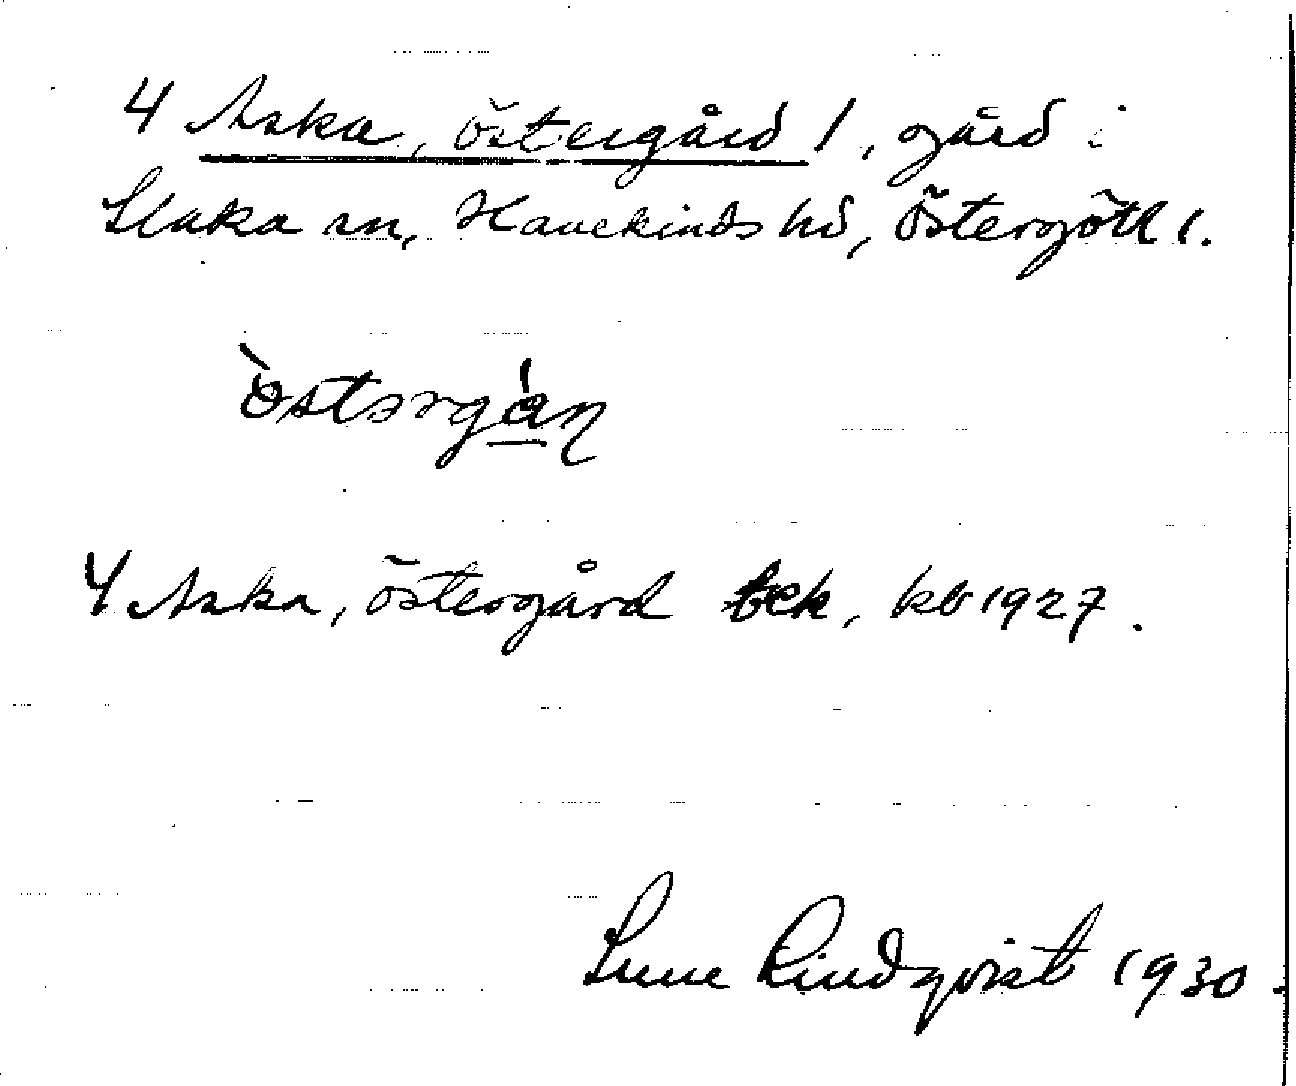 4 Aska, Östergård 1, gård i
Slaka sn, Hanekinds hd, Östergötl l.
òstərgán
4 Aska, Östergård bek, kb 1927.
Sune Lindqvist 1930.